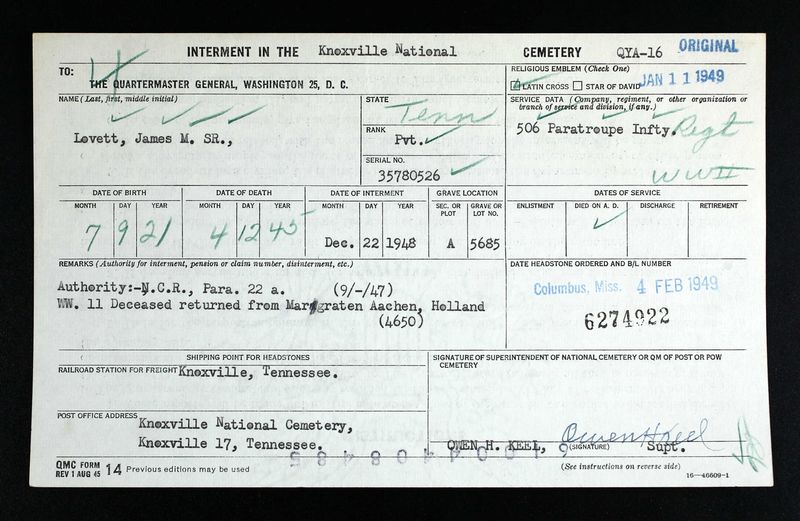 INTERMENT IN THE Knoxville National CEMETERY QYA-16 ORIGINAL
TO:
THE QUARTERMASTER GENERAL, WASHINGTON 25, D. C.
RELIGIOUS EMBLEM (Check One)
LATIN CROSS STAR OF DAVID
JAN 11 1949
NAME (Last, first, middle initial)
Lovett, James M. SR.,
STATE
Tenn
RANK
Pvt.
SERIAL NO.
35780526
SERVICE DATA (Company, regiment, or other organization or
branch of service and division, if any.)
506 Paratroupe Infty. Regt
WWII
DATE OF BIRTH
MONTH DAY YEAR
7 9 21
DATE OF DEATH
MONTH DAY YEAR
4 12 45
DATE OF INTERMENT
MONTH DAY YEAR
Dec. 22 1948
GRAVE LOCATION
SEC. OR PLOT GRAVE OR LOT NO.
A 5685
DATES OF SERVICE
ENLISTMENT DIED ON A. D. DISCHARGE RETIREMENT
REMARKS (Authority for interment, pension or claim number, disinterment, etc.)
Authority:-N.C.R., Para. 22 a. (9/-/47)
WW. 11 Deceased returned from Margraten Aachen, Holland
(4650)
DATE HEADSTONE ORDERED AND B/L NUMBER
Columbus, Miss. 4 FEB 1949
6274922
SHIPPING POINT FOR HEADSTONES
RAILROAD STATION FOR FREIGHT Knoxville, Tennessee.
POST OFFICE ADDRESS Knoxville National Cemetery,
Knoxville 17, Tennessee.
SIGNATURE OF SUPERINTENDENT OF NATIONAL CEMETERY OR QM OF POST OR POW
CEMETERY
Owen H Keel
OWEN H. KEEL, (SIGNATURE) Supt.
(See instructions on reverse side)
QMC FORM
REV 1 AUG 45 14 Previous editions may be used
16—46609-1